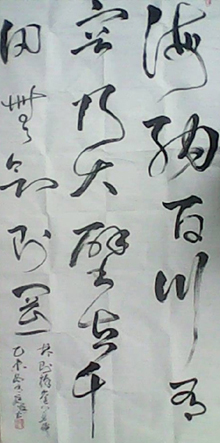 海纳百川有
容乃大壁立千
仞无欲则刚